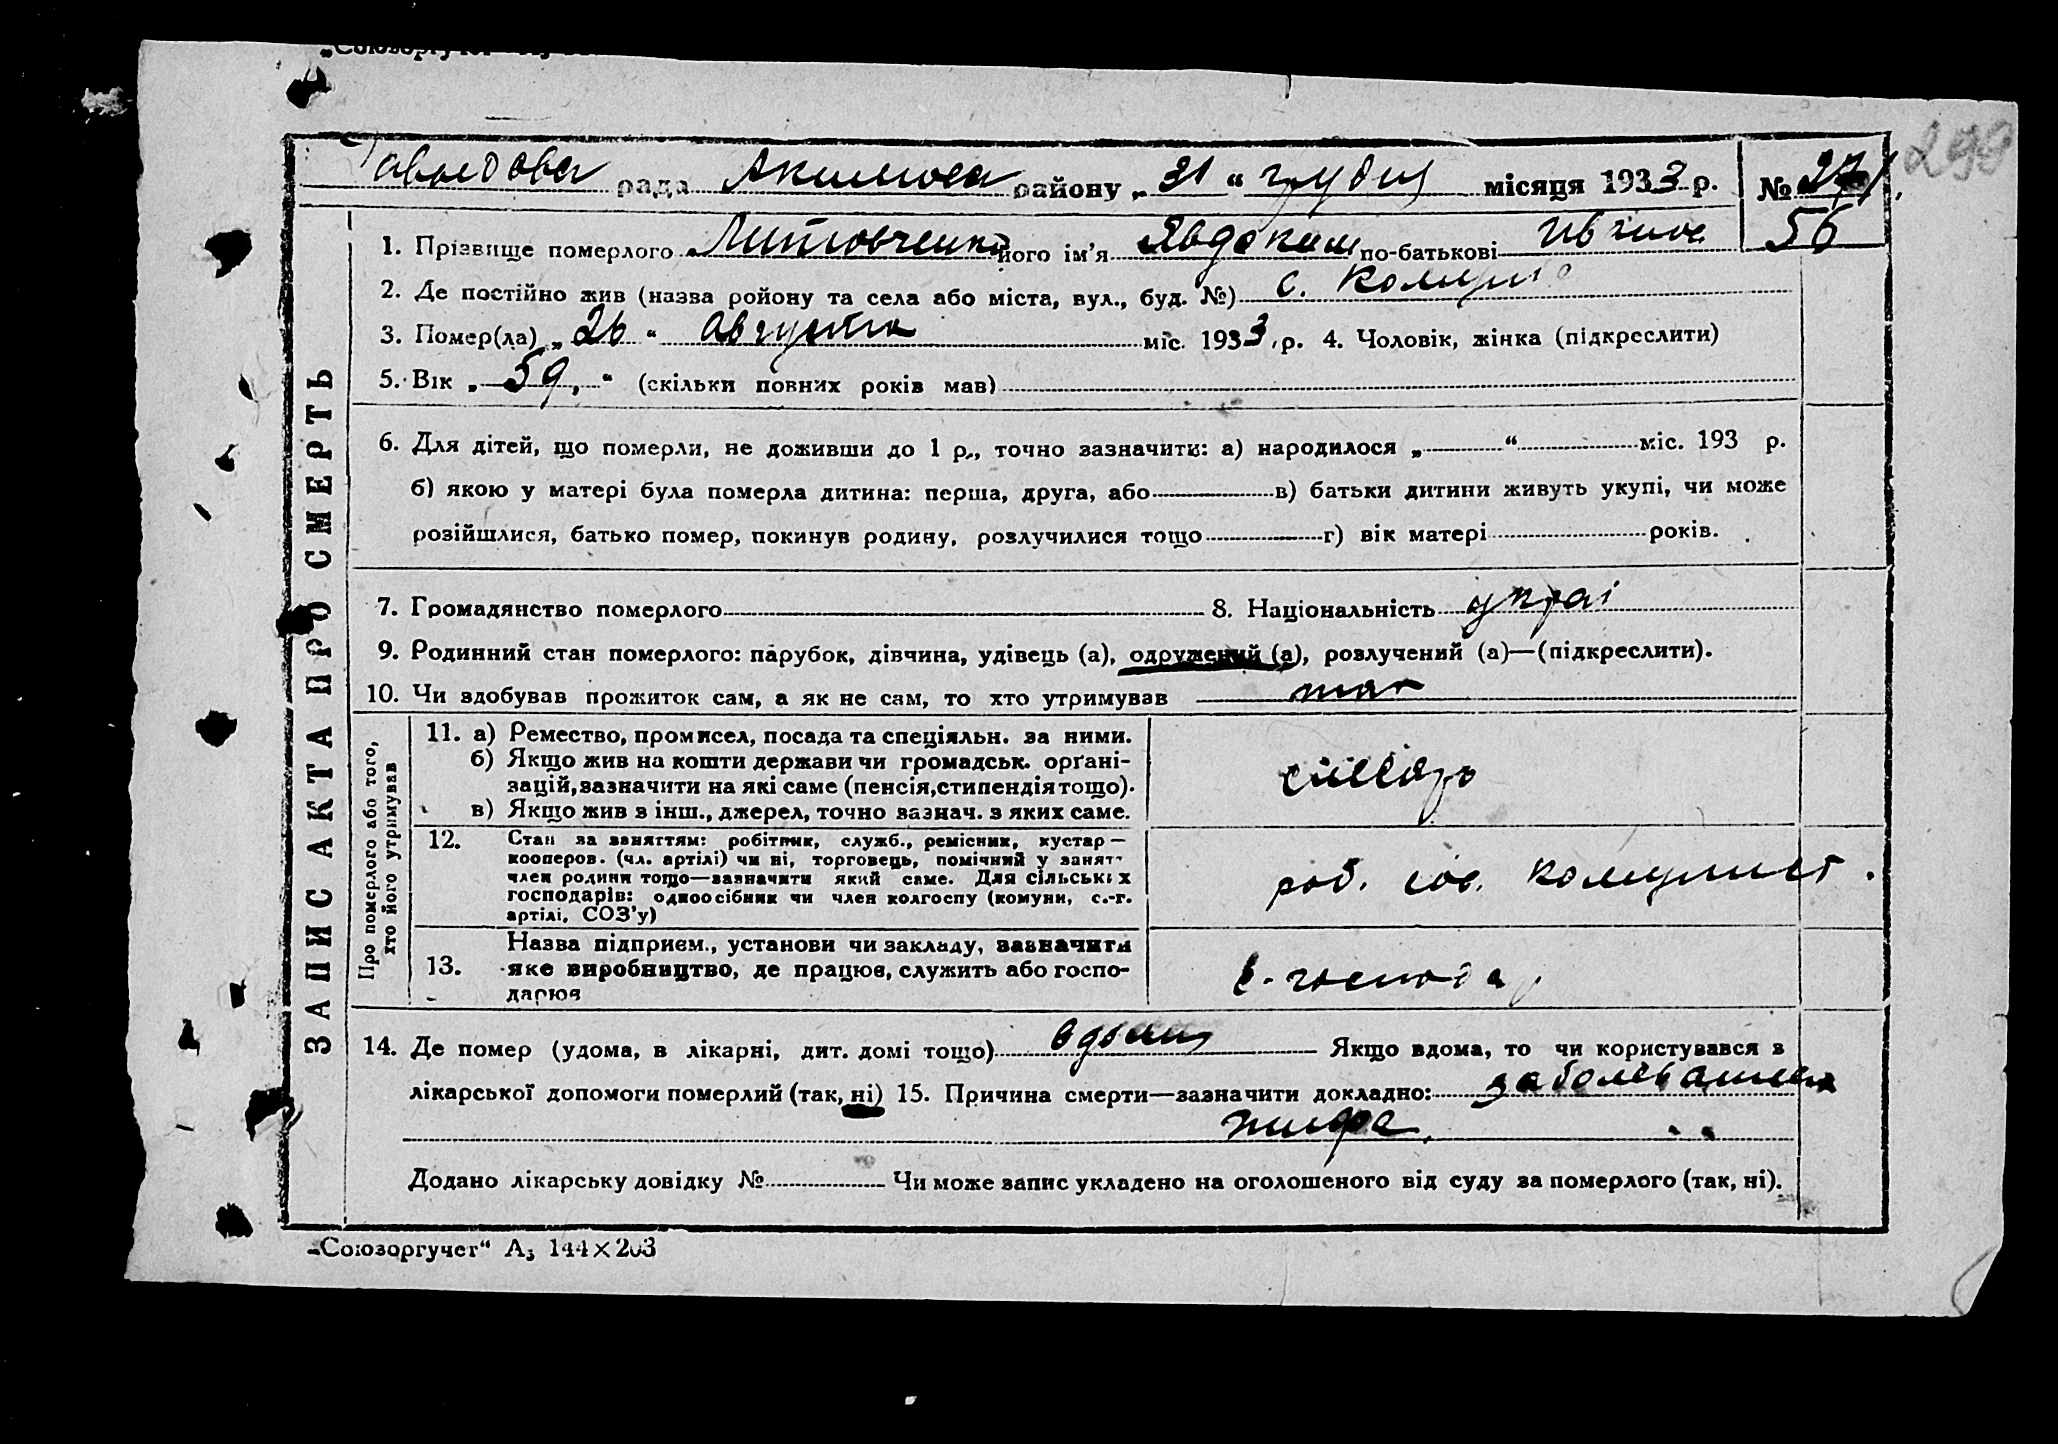 299
рада району „ 31 “ грудня місяця 1933 р. №
56
1. Прізвище померлого Литовченко його ім'я Явдокия по-батькові
2. Де постійно жив (назва ройону та села або міста, вул., буд. №) с.
3. Помер(ла) „ 26 “ августа міс. 1933 р. 4. Чоловік, жінка (підкреслити)
5. Вік „ 59 “ (скільки повних років мав)
6. Для дітей, що померли, не доживши до 1 р., точно зазначити: а) народилося „ “ міс. 193 р.
б) якою у матері була померла дитина: перша, друга, або в) батьки дитини живуть укупі, чи може
розійшлися, батько помер, покинув родину, розлучилися тощо г) вік матері років.
7. Громадянство померлого 8. Національність украі
9. Родинний стан померлого: парубок, дівчина, удівець (а), одружений (а), розлучений (а)—(підкреслити).
10. Чи здобував прожиток сам, а як не сам, то хто утримував
ЗАПИС АКТА ПРО СМЕРТЬ
Про померлого або того, хто його утримував
11. а) Ремество, промисел, посада та спеціяльн. за ними.
б) Якщо жив на кошти держави чи громадськ. орґані-
зацій, зазначити на які саме (пенсія, стипендія тощо).
в) Якщо жив з інш., джерел, точно зазнач. з яких саме.
слесарь
12. Стан за заняттям: робітник, служб., ремісник, кустар —
кооперов. (чл. артілі) чи ні, торговець, помічний у занят
член родини тощо—зазначити який саме. Для сільських
господарів: одноосібник чи член колгоспу (комуни, с.-г.
артілі, СОЗ'у)
роб. сов.
Назва підприєм., установи чи закладу, зазначити
13. яке виробництво, де працює, служить або госпо-
дарює
14. Де помер (удома, в лікарні, дит. домі тощо) вдома Якщо вдома, то чи користувався з
лікарської допомоги померлий (так, ні) 15. Причина смерти—зазначити докладно: заболевания
тифа
Додано лікарську довідку № Чи може запис укладено на оголошеного від суду за померлого (так, ні).
„Союзоргучет“ А5 144×203